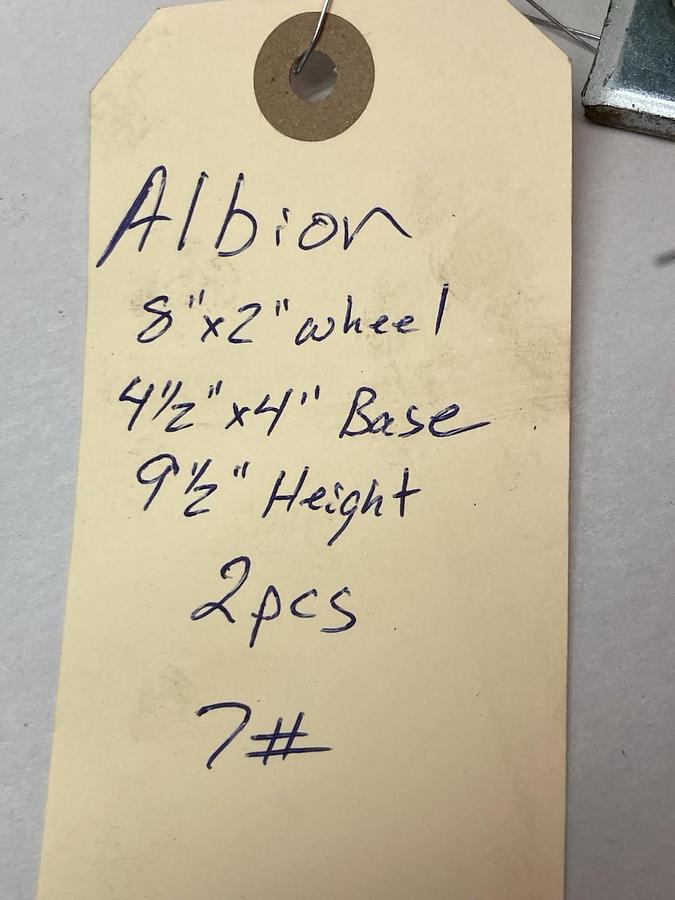 Albion
8"x2" wheel
4½"x4" Base
9½" Height
2pcs
7#